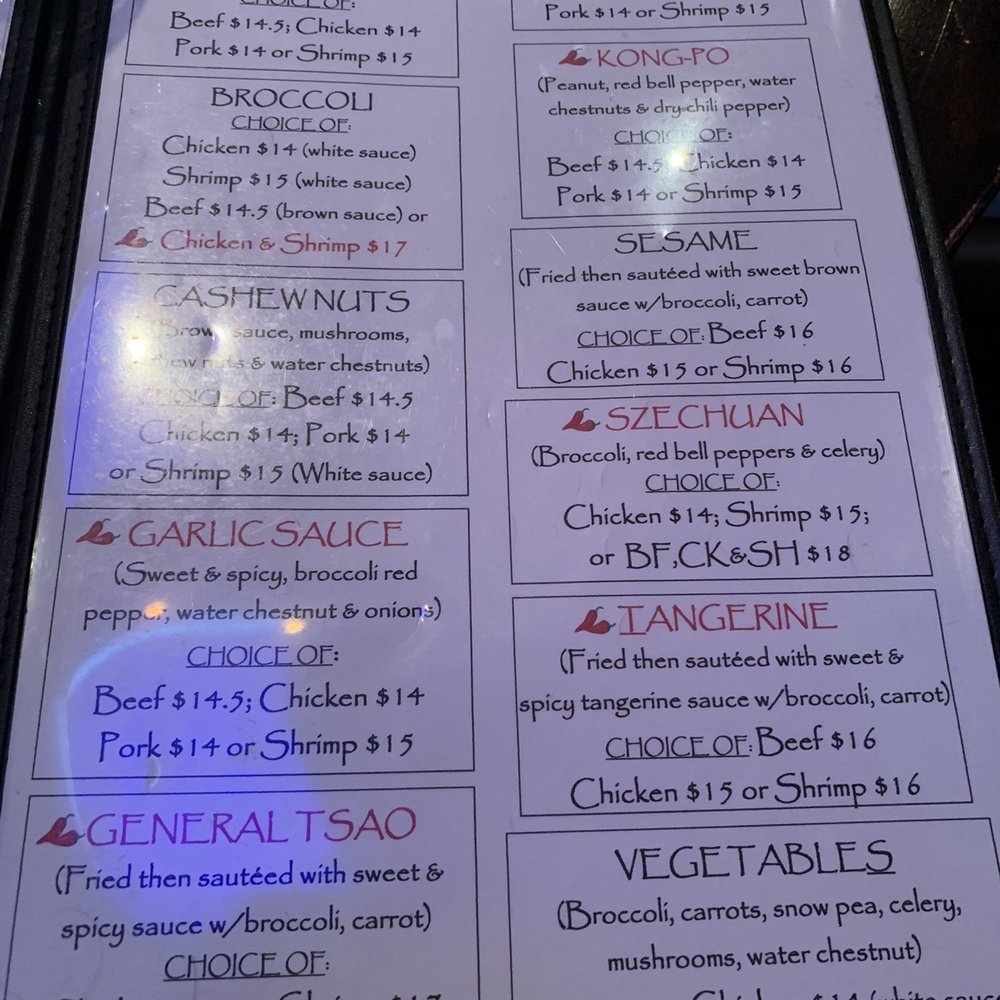 CHOICE OF:
Beef $14.5; Chicken $14
Pork $14 or Shrimp $15
BROCCOLI
CHOICE OF:
Chicken $14 (white sauce)
Shrimp $15 (white sauce)
Beef $14.5 (brown sauce) or
Chicken & Shrimp $17
CASHEW NUTS
(Brown sauce, mushrooms,
nuts & water chestnuts)
CHOICE OF: Beef $14.5
Chicken $14; Pork $14
or Shrimp $15 (White sauce)
GARLIC SAUCE
(Sweet & spicy, broccoli red
pepper, water chestnut & onions)
CHOICE OF:
Beef $14.5; Chicken $14
Pork $14 or Shrimp $15
GENERAL TSAO
(Fried then sautéed with sweet &
spicy sauce w/broccoli, carrot)
CHOICE OF:
Pork $14 or Shrimp $15
KONG-PO
(Peanut, red bell pepper, water
chestnuts & dry chili pepper)
CHOICE OF:
Beef $14.5 Chicken $14
Pork $14 or Shrimp $15
SESAME
(Fried then sautéed with sweet brown
sauce w/broccoli, carrot)
CHOICE OF: Beef $16
Chicken $15 or Shrimp $16
SZECHUAN
(Broccoli, red bell peppers & celery)
CHOICE OF:
Chicken $14; Shrimp $15;
or BF,CK&SH $18
TANGERINE
(Fried then sautéed with sweet &
spicy tangerine sauce w/broccoli, carrot)
CHOICE OF: Beef $16
Chicken $15 or Shrimp $16
VEGETABLES
(Broccoli, carrots, snow pea, celery,
mushrooms, water chestnut)